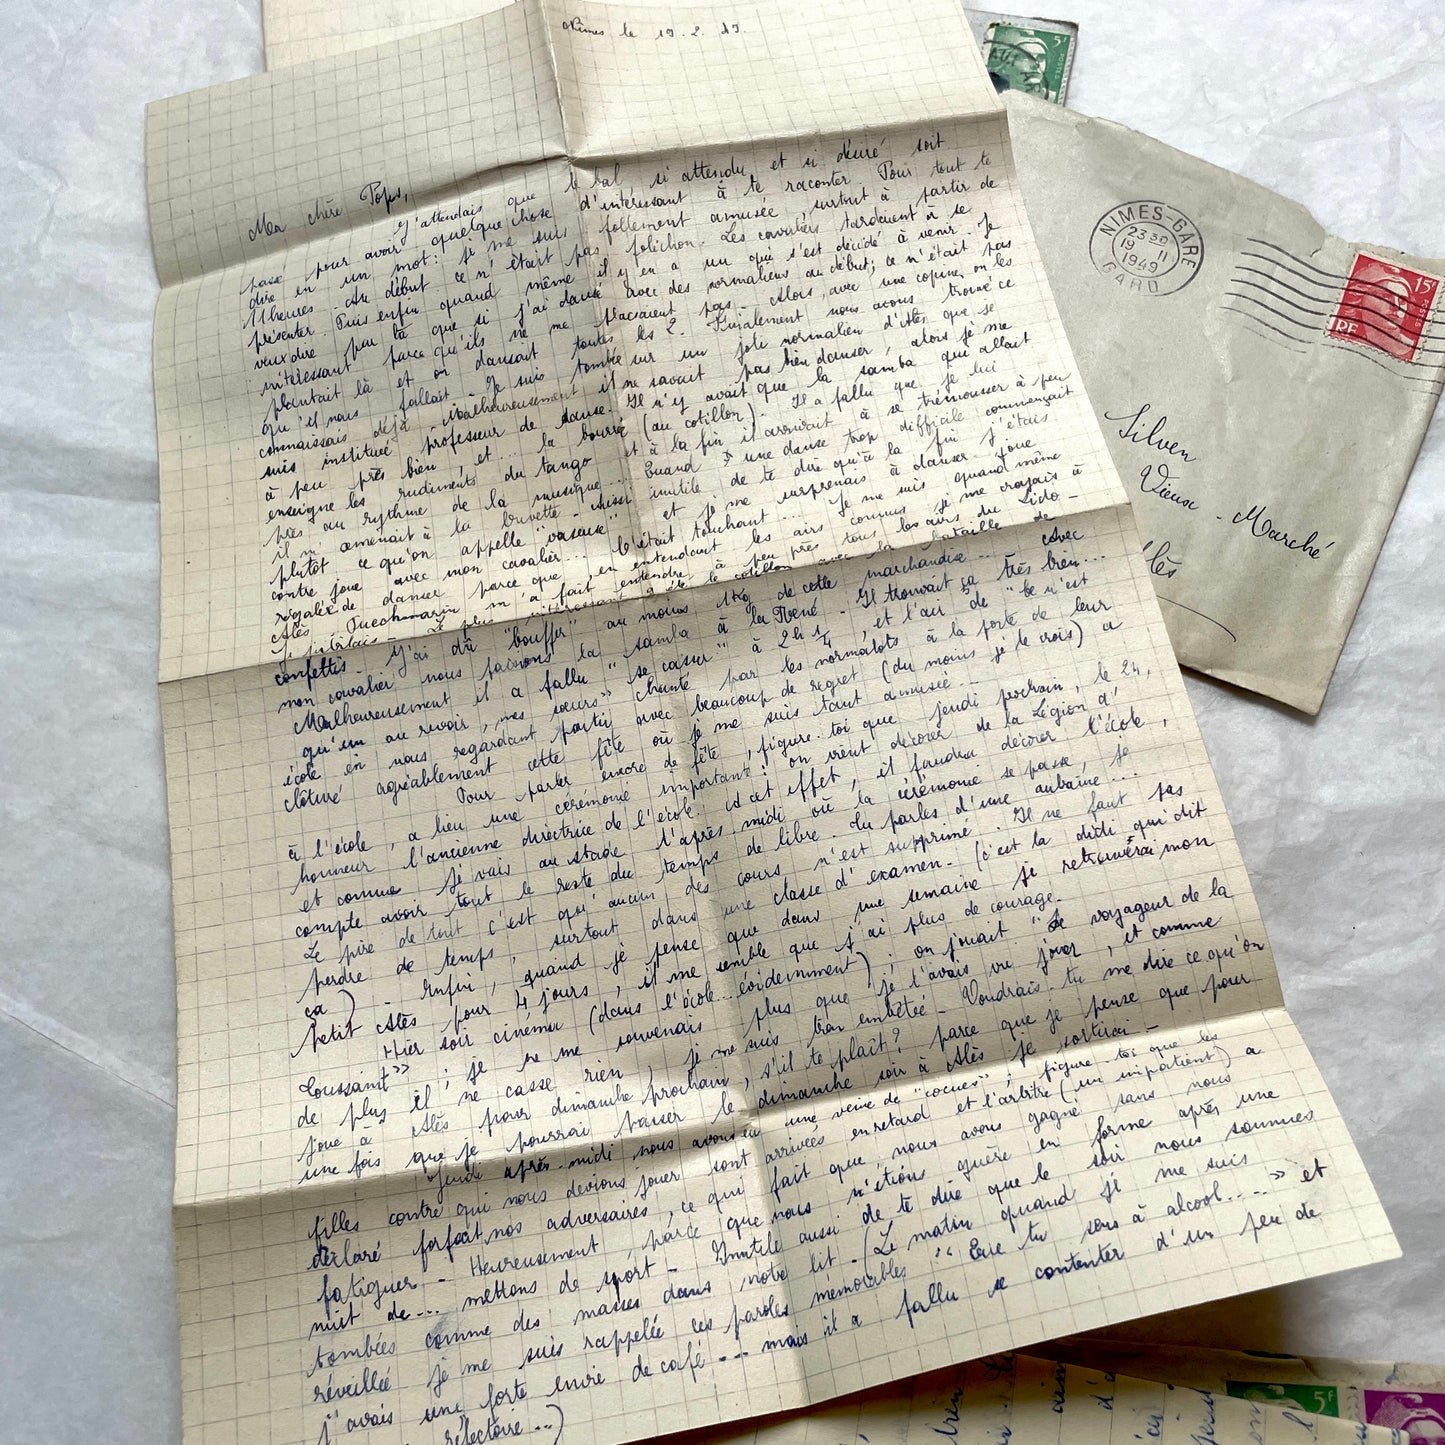 Nîmes le 19.2.49.
Ma chère Pops,
J'attendais que le bal, si attendu et si désiré soit
passé pour avoir quelque chose d'intéressant à te raconter. Pour tout te
dire en un mot : je me suis follement amusée, surtout à partir de
11 heures. Au début ce n'était pas folichon. Les cavaliers tardaient à se
présenter. Puis enfin quand même il y en a un qui s'est décidé à venir. Je
veux dire par là que si j'ai dansé avec des normaliens au début, ce n'était pas
intéressant parce qu'ils ne me plaisaient pas. Alors, avec une copine, on les
plantait là et on dansait toutes les 2. Finalement nous avons trouvé ce
qu'il nous fallait. Je suis tombée sur un joli normalien d'Alès que je
connaissais déjà. Malheureusement il ne savait pas bien danser, alors je me
suis instituée professeur de danse. Il n'y avait que la samba qui allait
à peu près bien, et... la bourrée (au cotillon). Il a fallu que je lui
enseigne les rudiments du tango et à la fin il arrivait à se trémousser à peu
près au rythme de la musique... Quand une danse trop difficile commençait
il m'emmenait à la buvette. Aussi inutile de te dire qu'à la fin j'étais
plutôt ce qu'on appelle "vaseuse" et je me surprenais à danser joue
contre joue avec mon cavalier... C'était touchant... Je me suis quand même
régalée de danser parce que, en entendant les airs connus je me croyais à
Alès. Puechmarin m'a fait entendre à peu près tous les airs du Lido.
Je jubilais. Le plus intéressant a été le cotillon avec la bataille de
confettis. J'ai dû "bouffer" au moins 1 kg de cette marchandise... Avec
mon cavalier nous faisions la samba à la René. Il trouvait ça très bien...
Malheureusement il a fallu "se casser" à 2h 1/4, et l'air de "ce n'est
qu'un au revoir, mes sœurs" chanté par les normalots à la porte de leur
école en nous regardant partir avec beaucoup de regret (du moins je le crois) a
clôturé agréablement cette fête où je me suis tant amusée.
Pour parler encore de fête, figure-toi que jeudi prochain, le 24,
à l'école, a lieu une cérémonie importante : on vient décorer de la Légion d'
honneur l'ancienne directrice de l'école. A cet effet, il faudra décorer l'école,
et comme je vais au stade l'après-midi où la cérémonie se passe, je
compte avoir tout le reste du temps de libre. Tu parles d'une aubaine...
Le pire de tout c'est qu'aucun des cours n'est supprimé. Il ne faut pas
perdre de temps, surtout dans une classe d'examen. (c'est la didi qui dit
ça). Enfin, quand je pense que dans une semaine je retrouverai mon
petit Alès pour 4 jours, il me semble que j'ai plus de courage.
Hier soir cinéma (dans l'école... évidemment) ; on jouait "Le voyageur de la
Toussaint" ; je ne me souvenais plus que je l'avais vu jouer, et comme
de plus il ne casse rien, je me suis bien embêtée. Voudrais-tu me dire ce qu'on
joue à Alès pour dimanche prochain, s'il te plaît ? parce que je pense que pour
une fois que je pourrai passer le dimanche soir à Alès je sortirai.
Jeudi après-midi nous avons eu une veine de "cocues" ; figure-toi que les
filles contre qui nous devions jouer sont arrivées en retard et l'arbitre (un impatient) a
déclaré forfait nos adversaires, ce qui fait que nous avons gagné sans nous
fatiguer. Heureusement, parce que nous n'étions guère en forme après une
nuit de... mettons de sport. Inutile aussi de te dire que le soir nous sommes
tombées comme des masses dans notre lit. (Le matin quand je me suis
réveillée je me suis rappelée ces paroles mémorables : "Eve tu sens à alcool....." et
j'avais une forte envie de café... mais il a fallu se contenter d'un peu de
réfectoire...)
NIMES-GARE
23 30
19 II
1949
GARD
15F
POSTES
RF
5F
POSTES
Silven
Vieux-Marché
5F